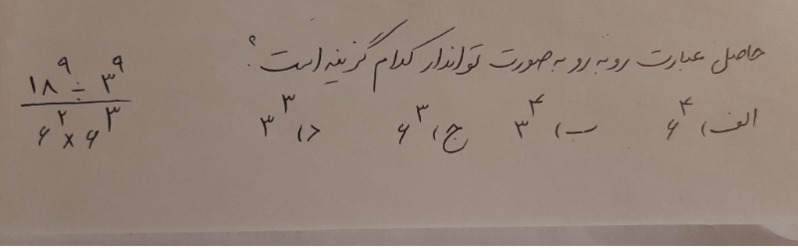 حاصل عبارت روبه رو به صورت تواندار کدام گزینه است؟
الف) ۶^۴ ب) ۳^۴ ج) ۶^۳ د) ۳^۳
۱۸^۹ ÷ ۳^۹
۶^۲ × ۶^۳